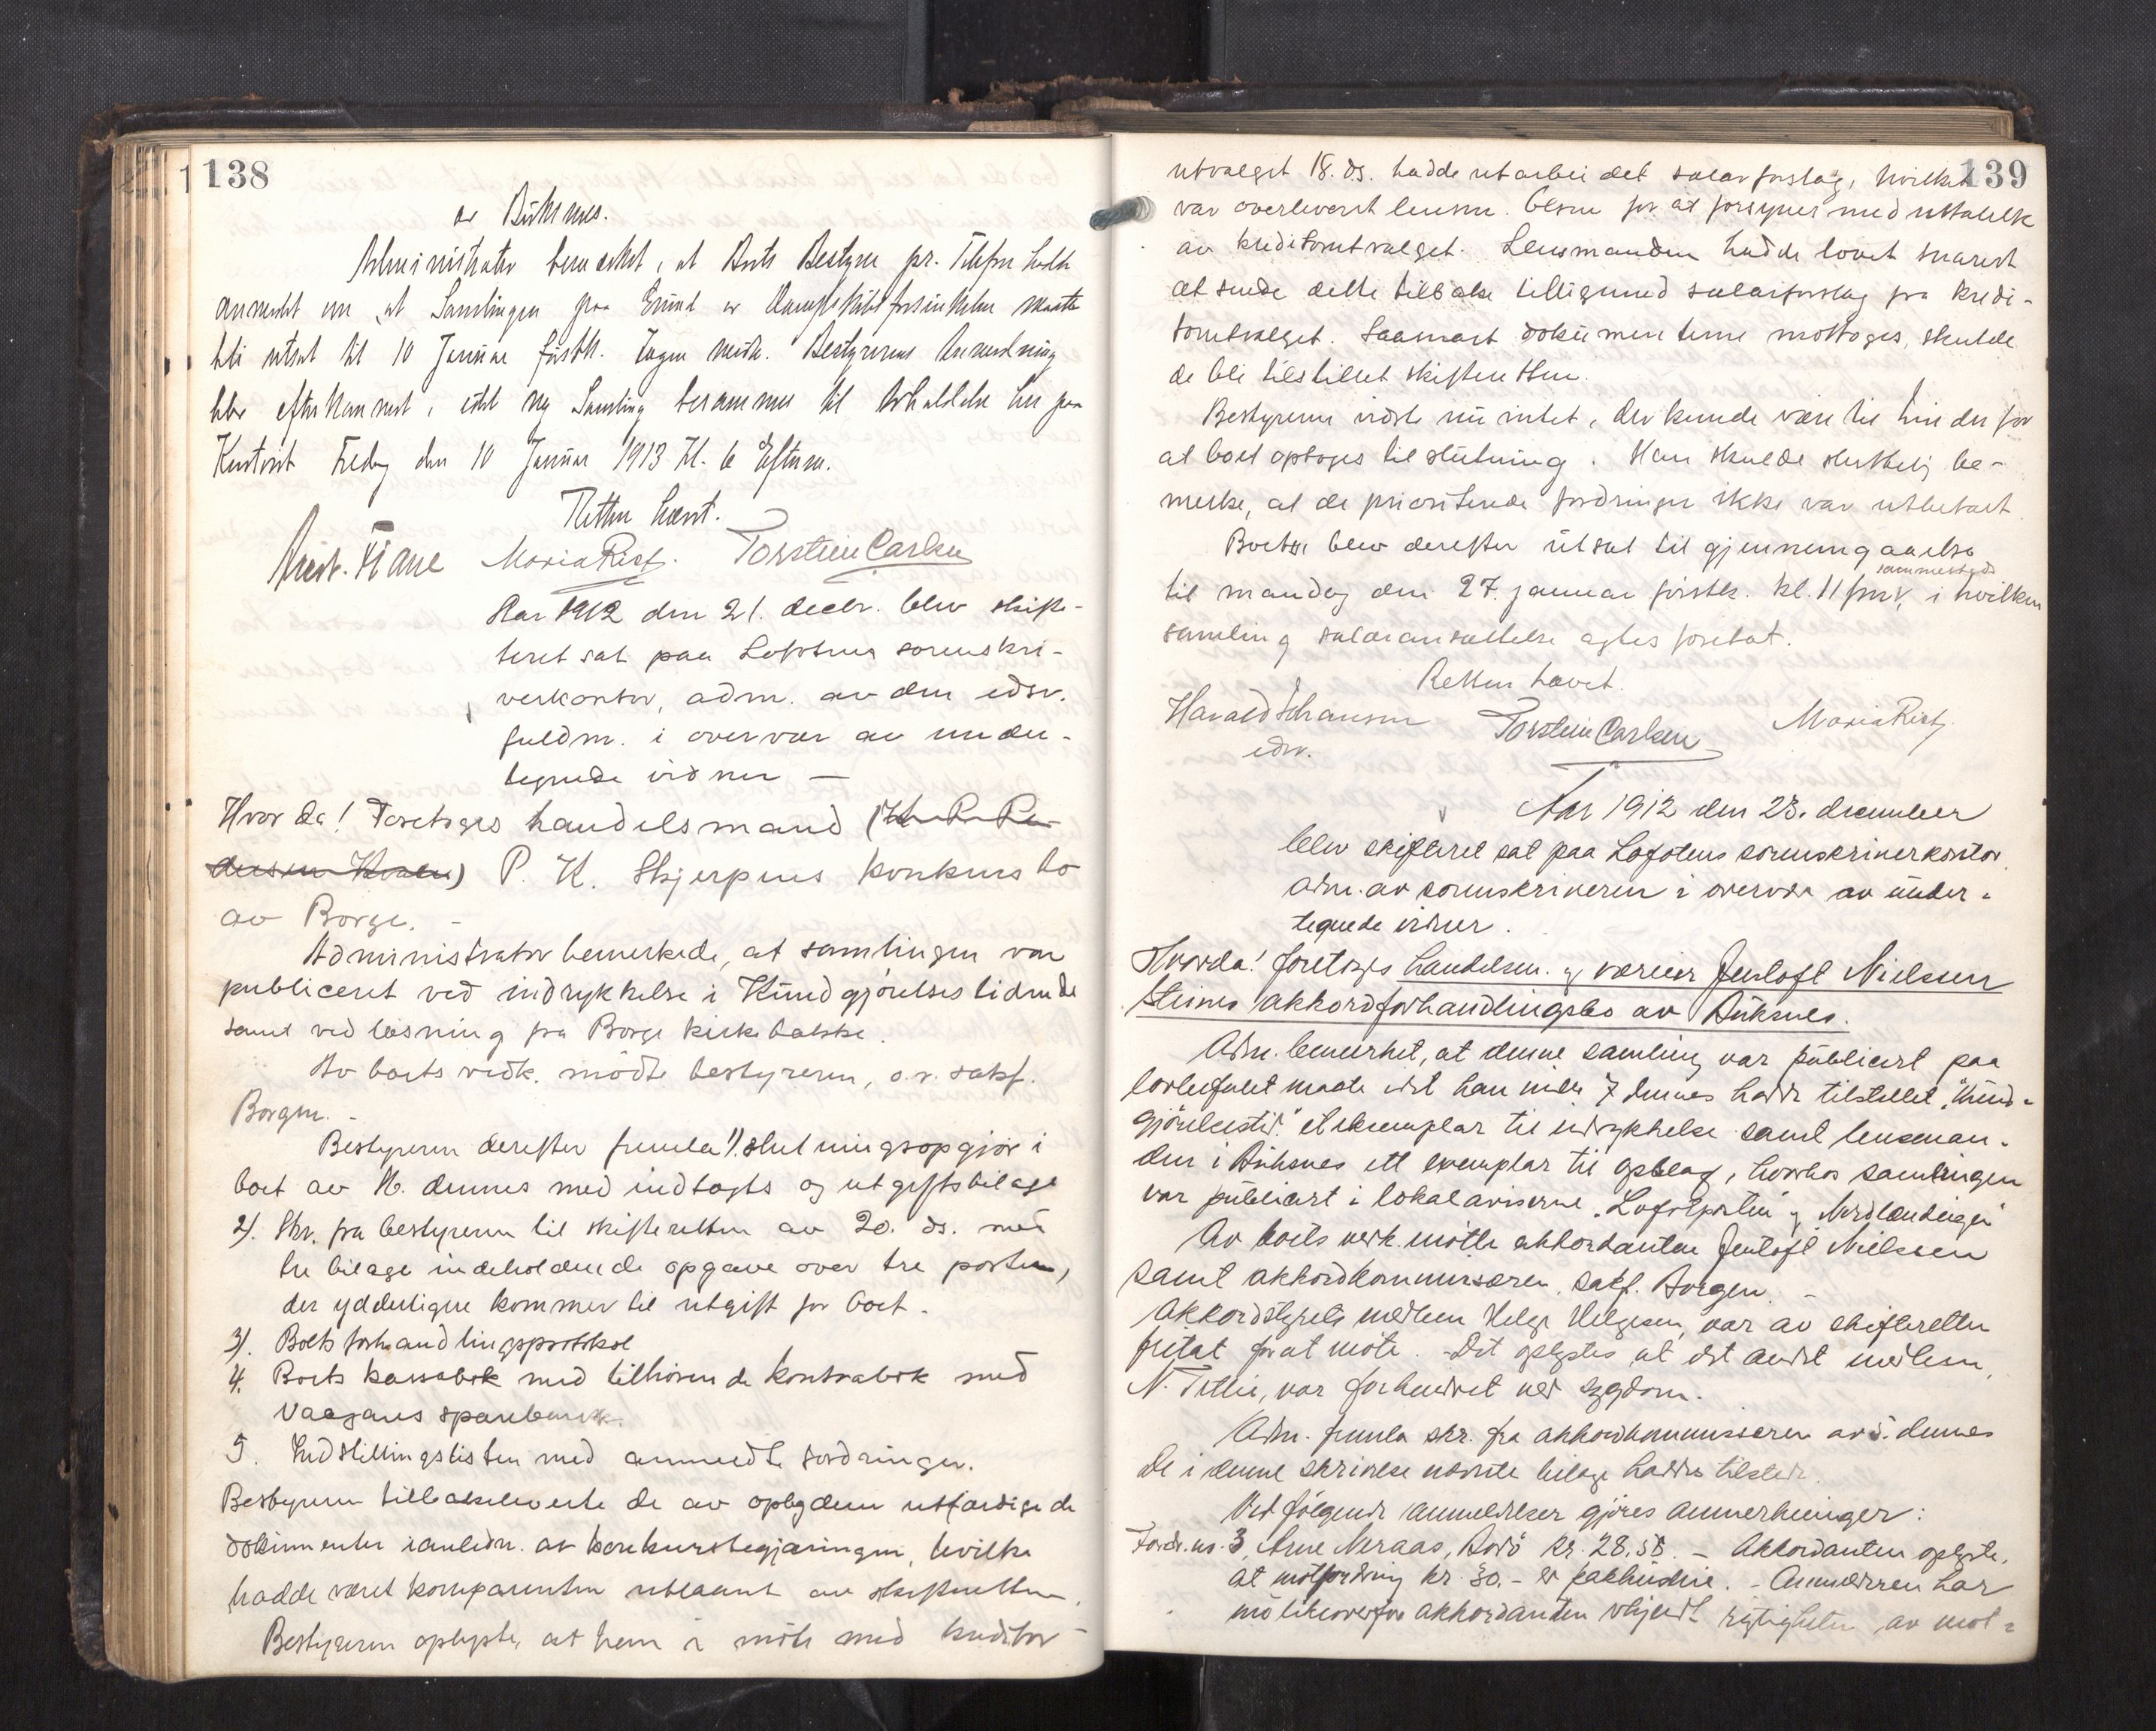 138
av Buksnes.
Administrator bemerket, at Boets Bestyrer pr. Telefon hadde
anmodet om at Samlingen paa Grund av Dampskibsforsinkelse maatte
bli utsat til 10 Januar førstk. Ingen møtte. Bestyrerens Anmodning
blev efterkommet, idet ny Samling berammes til Avholdelse her paa
Kontoret Fredag den 10 Januar 1913 Kl. 6 Efterm.
Retten hævet.
Maria Rist. Torstein Carlsen
Aar 1912 den 21. decbr. blev skifte-
teret sat paa Lofotens sorenskri-
verkontor, adm. av den edsv.
fuldm. i overvær av under-
tegnede vidner —
Hvorda! Foretoges handelsmand
P. K. Skjerpnes konkursbo
av Borge. -
Administrator bemerkede, at samlingen var
publiceret ved indrykkelse i Kundgjørelsestidende
samt ved læsning fra Borge kirkebakke.
Av boets vedk. mødte bestyreren, o.r. sakf.
Borgen. -
Bestyreren derefter fremla 1). slutningsopgjør i
boet av 16. dennes med indtægts og utgiftsbilage
2). Skr. fra bestyreren til skifteretten av 20. ds. med
tre bilage indeholdende opgave over tre poster,
der ydderligere kommer til utgift for boet.
3). Boets forhandlingsprotokol
4. Boets kassabok med tilhørende kontrabok med
Vaagans sparebank.
5. Indstillingslisten med anmeldte fordringer.
Bestyreren tilbakeleverte de av opbyderen utfærdigede
dokumenter i anledn. av konkursbegjæringen, hvilke
hadde været komparenten utlaant av skifteretten.
Bestyreren oplyste, at han i møte med kreditor-
139
utvalget 18. ds. hadde utarbeidet salærforslag, hvilket
var overleveret lensm. Olsen for at forsynes med uttalelse
av kreditorutvalget. Lensmanden hadde lovet snarest
at sende dette tilbake tilligemed salærforslag fra kredi-
torutvalget. Saasnart dokumenterne mottoges, skulde
de bli tilstillet skifteretten.
Bestyreren vidste nu intet, der kunde være til hinder for
at boet optages til slutning. Han skulde sluttelig be-
merke, at de prioriterede fordringer ikke var utbetalt.
Boet blev derefter utsat til gjennemgaaelse
sammesteds
til mandag den 27. januar førstk. kl. 11 fmd, i hvilken
samling salæransættelse agtes foretat.
Retten hævet.
Harald Johansen Torstein Carlsen Maria Rist.
edsv.
Aar 1912 den 23. december
blev skifteret sat paa Lofotens sorenskriverkontor
adm. av sorenskriveren i overvær av under-
tegnede vidner.
Hvorda! foretoges handelsm. og væreier Jentoft Nielsen
Steines akkordforhandlingsbo av Buksnes.
Adm. bemerket, at denne samling var publicert paa
lovbefalet maate idet han under 7 dennes hadde tilstillet "Kund-
gjørelsestid." et eksemplar til indrykkelse samt lensman-
den i Buksnes ett exemplar til opslag, hvorhos samlingen
var publicert i lokalaviserne "Lofotposten" og "Nordlændingen"
Av boets vedk. møtte akkordanten Jentoft Nielsen
samt akkordkommissæren, sakf. Borgen. -
Akkordstyrets medlem Helge Helgesen, var av skifteretten
fritat for at møte. - Det oplystes at det andet medlem,
N. Tetlie, var forhindret ved sygdom.
Adm. fremla skr. fra akkordkommissæren av 5. dennes
De i denne skrivelse nævnte bilage hadde tilstede.
Ved følgende anmeldelser gjøres anmerkninger:
Fordr. no. 3, Arne Meraas, Bodø kr. 28,58. - Akkordanten oplyste,
at motfordring kr. 30.- er pakhusleie. - Anmelderen har
nu likeoverfor akkordanten vedgjendt rigtigheten av mot-